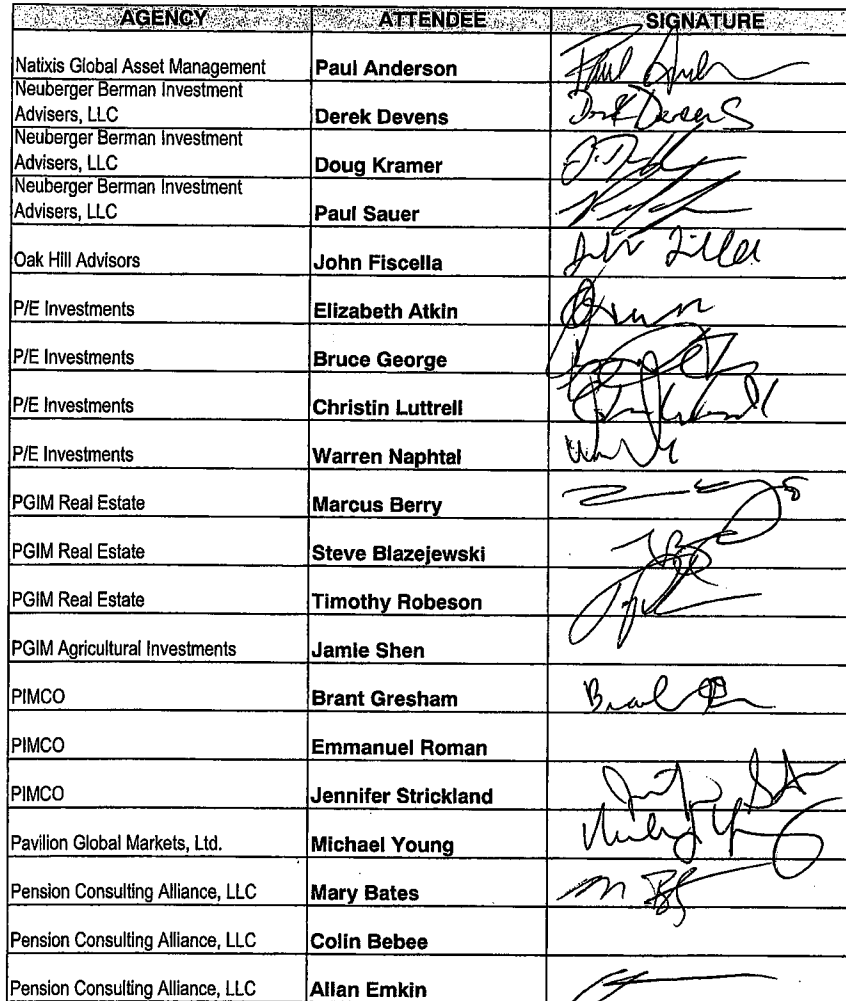 AGENCY ATTENDEE SIGNATURE
Natixis Global Asset Management Paul Anderson
Neuberger Berman Investment
Advisers, LLC Derek Devens
Neuberger Berman Investment
Advisers, LLC Doug Kramer
Neuberger Berman Investment
Advisers, LLC Paul Sauer
Oak Hill Advisors John Fiscella
P/E Investments Elizabeth Atkin
P/E Investments Bruce George
P/E Investments Christin Luttrell
P/E Investments Warren Naphtal
PGIM Real Estate Marcus Berry
PGIM Real Estate Steve Blazejewski
PGIM Real Estate Timothy Robeson
PGIM Agricultural Investments Jamie Shen
PIMCO Brant Gresham
PIMCO Emmanuel Roman
PIMCO Jennifer Strickland
Pavilion Global Markets, Ltd. Michael Young
Pension Consulting Alliance, LLC Mary Bates
Pension Consulting Alliance, LLC Colin Bebee
Pension Consulting Alliance, LLC Allan Emkin